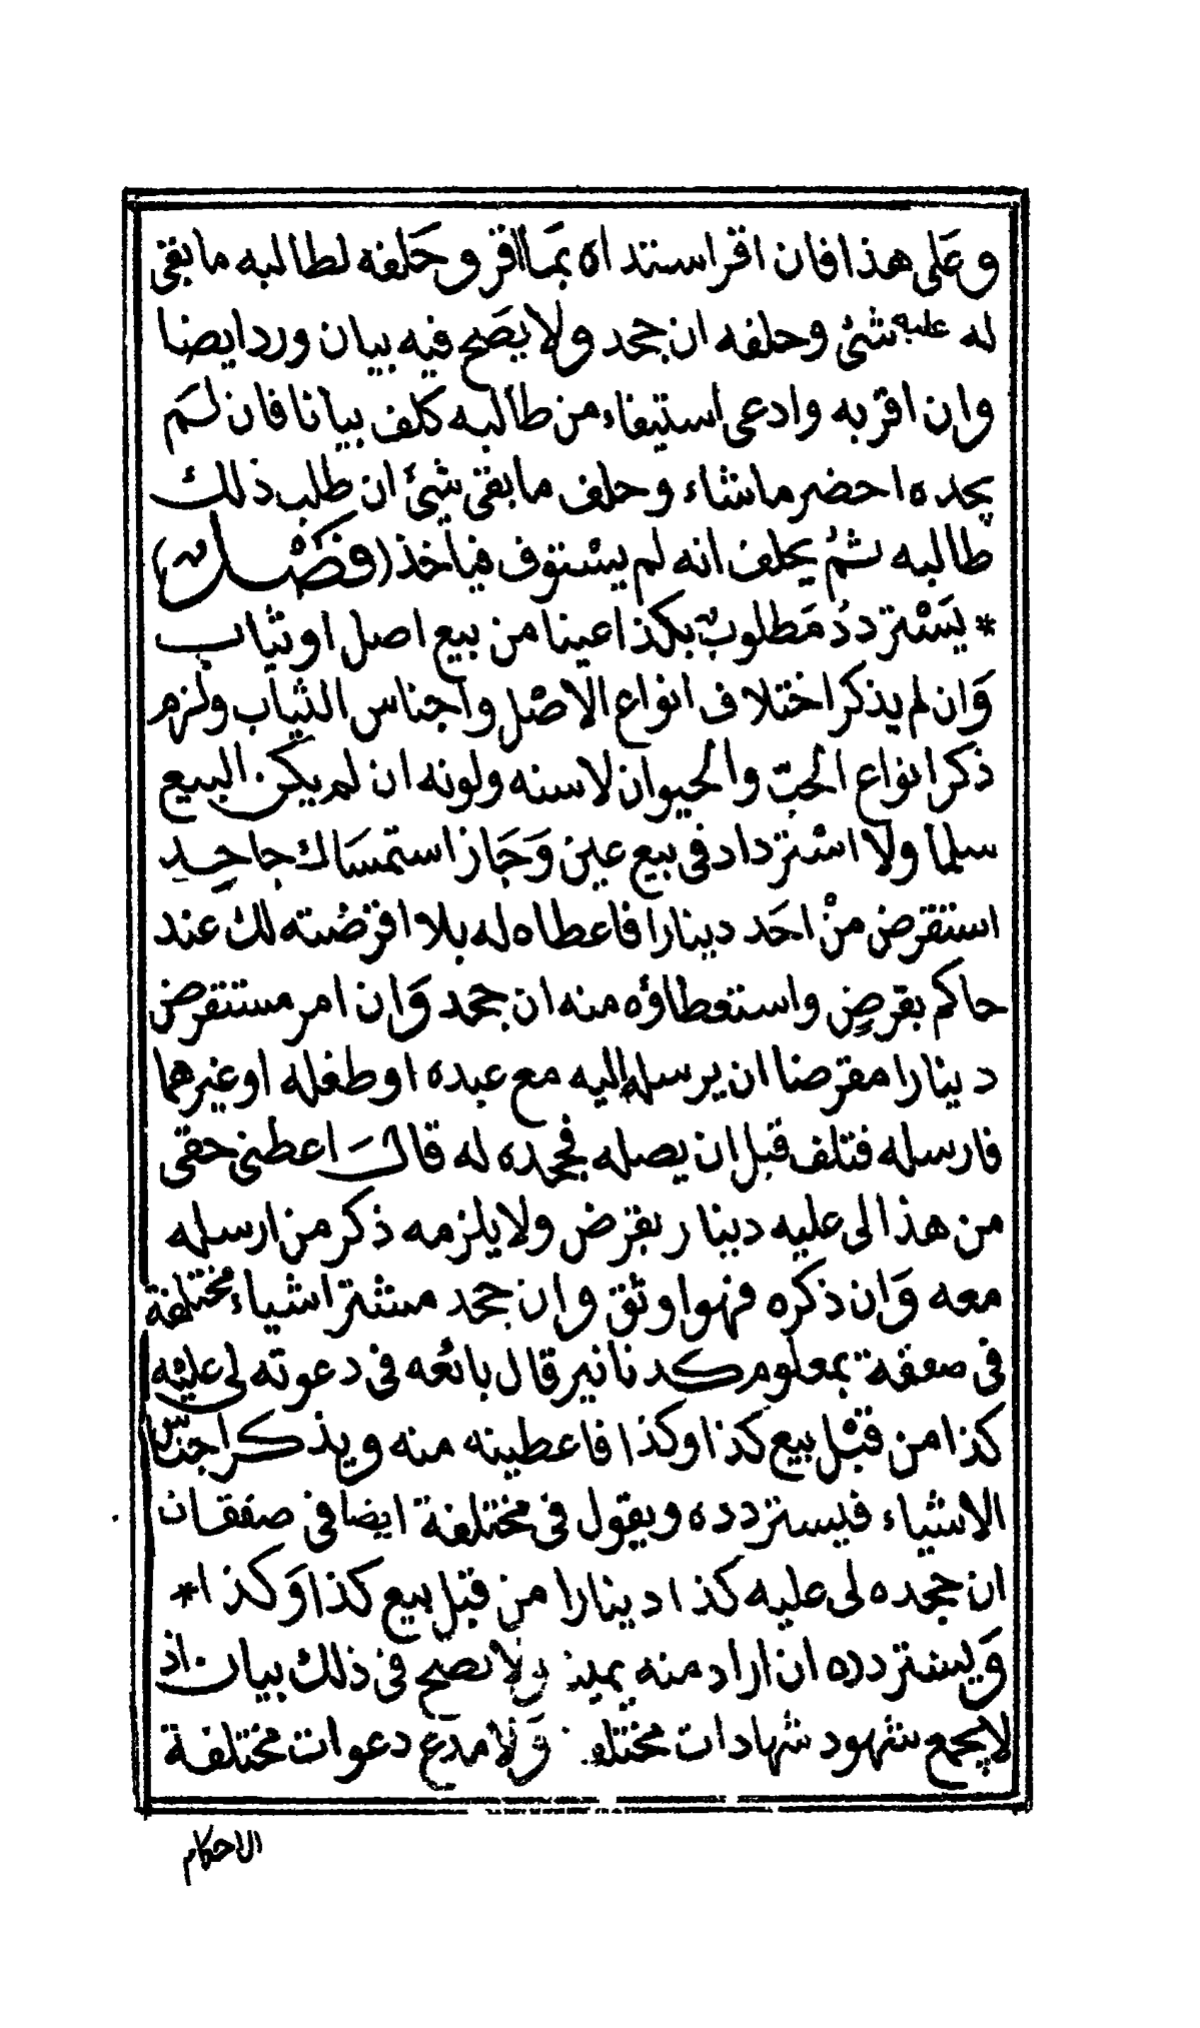 وعلى هذا فان اقر استنداه بما اقر وحلفه لطالبه ما بقى
له عليه شئ وحلفه ان جحد ولا يصح فيه بيان ورد ايضا
وان اقر به وادعى استيفاء من طالبه كلف بيانا فان لم
يجده احضر ما شاء وحلف ما بقى شئ ان طلب ذلك
طالبه ثم يحلف انه لم يستوف فيأخذ (فصل)
* يسترددُ مطلوب بكذا عينا من بيع اصل او ثياب
وان لم يذكر اختلاف انواع الاصل واجناس الثياب ولزم
ذكر انواع الحب والحيوان لا سنه ولونه ان لم يكن البيع
سلما ولا استرداد فى بيع عين وجاز استمساك جاحد
استقرض من احد دينارا فاعطاه له بلا اقرضته لك عند
حاكم بقرض واستعطاؤه منه ان جحد وان امر مستقرض
دينارا مقرضا ان يرسله اليه مع عبده او طفله او غيرهما
فارسله فتلف قبل ان يصله فجحده له قال اعطنى حقى
من هذا الى عليه دينار بقرض ولا يلزمه ذكر من ارسله
معه وان ذكره فهو اوثق وان جحد مشتر اشياء مختلفة
فى صفقة بمعلوم كدنانير قال بائعه فى دعوته لى عليه
كذا من قبل بيع كذا وكذا فاعطينه منه ويذكر اجناس
الاشياء فيستردده ويقول فى مختلفة ايضا فى صفقات
ان جحده لى عليه كذا دينارا من قبل بيع كذا وكذا *
ويستردده ان اراد منه يمينا ولا يصح فى ذلك بيان اذ
لا يجمع شهود شهادات مختلفة ولا مدع دعوات مختلفة
الاحكام